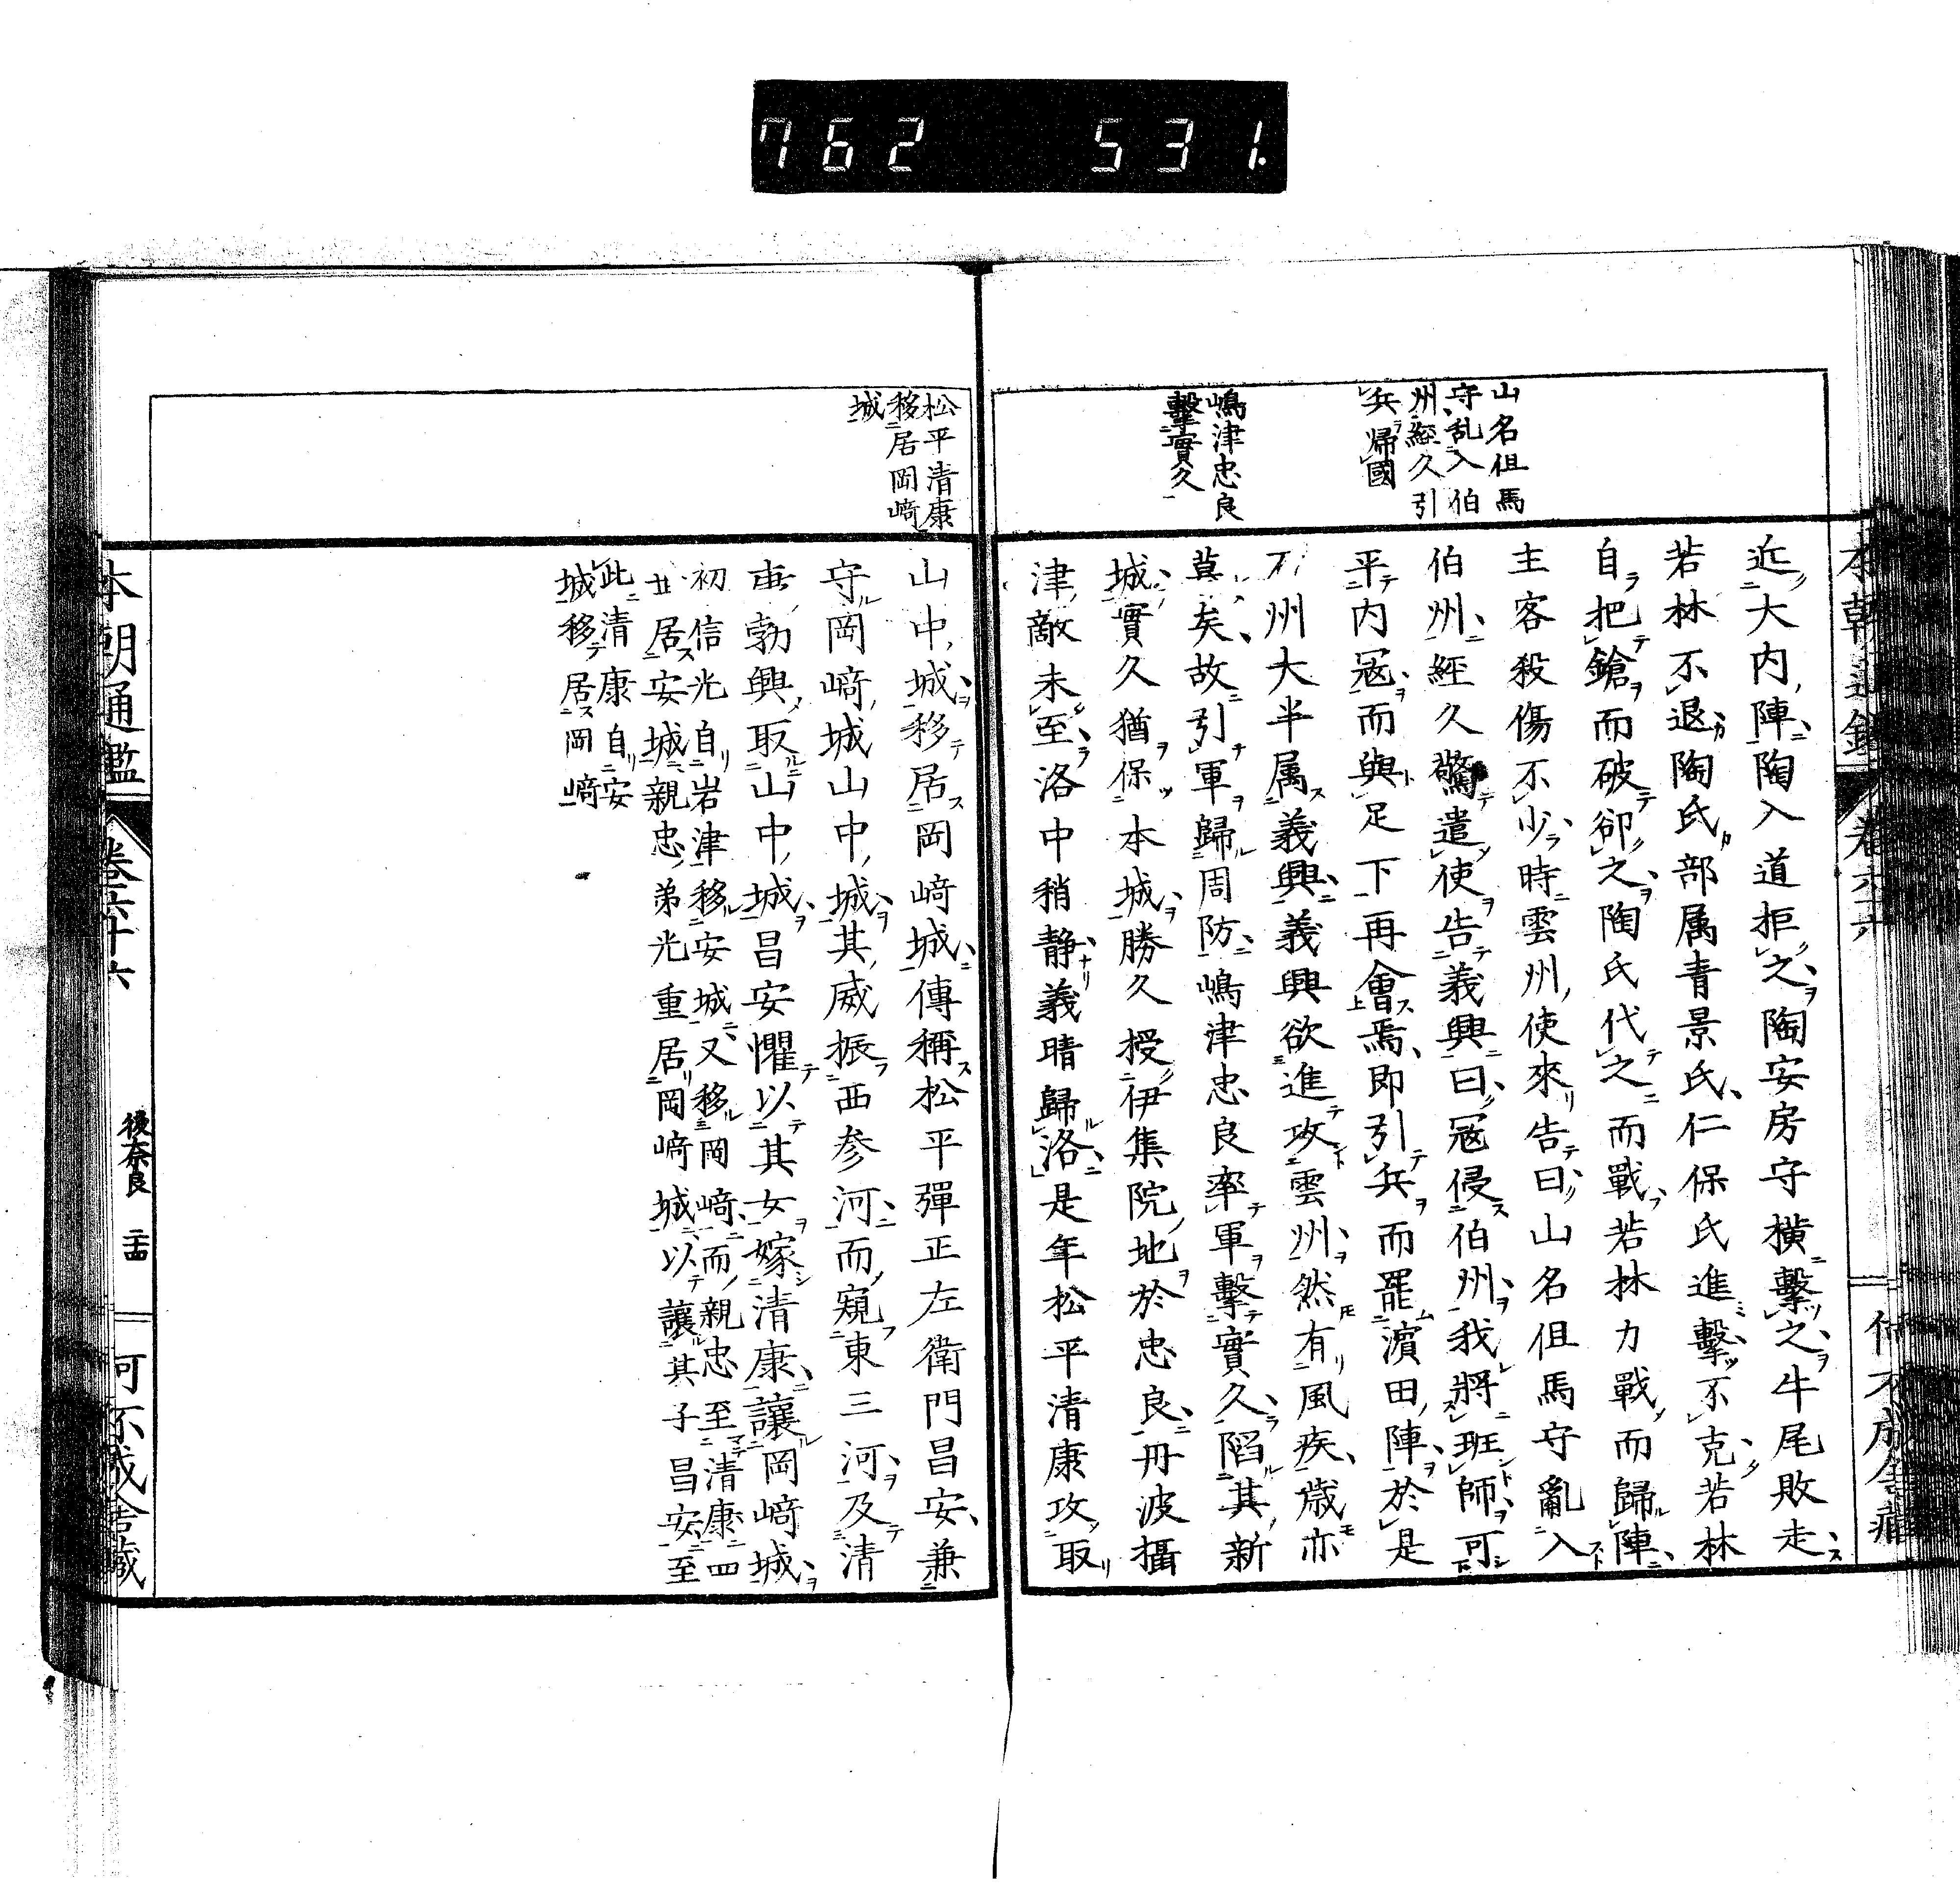 762 531.
山名伹馬
守乱入伯
州經久引
兵歸國
嶋津忠良
擊實久
近大内陣陶入道拒之陶安房守横擊之牛尾敗走
若林不退陶氏部属青景氏仁保氏進擊不克若林
自把鎗而破卻之陶氏代之而戰若林力戰而歸陣
主客殺傷不少時雲州使來告曰山名伹馬守亂入
伯州經久驚遣使告義興曰冦侵伯州我將班師可
平内冦而與足下再會焉即引兵而罷濵田陣於是
州大半属義興義興欲進攻雲州然有風疾歳亦
莫矣故引軍歸周防嶋津忠良率軍擊實久陷其新
城實久猶保本城勝久授伊集院地於忠良丹波攝
津敵未至洛中稍静義晴歸洛是年松平清康攻取
松平清康
移居岡﨑
城
山中城移居岡﨑城傳稱松平彈正左衛門昌安兼
守岡﨑城山中城其威振西参河而窺東三河及清
康勃興取山中城昌安懼以其女嫁清康讓岡﨑城
初信光自岩津移安城又移岡﨑而親忠至清康四
世居安城親忠弟光重居岡﨑城以讓其子昌安至
此清康自安
城移居岡﨑
本朝通鑑
卷六十六
後奈良
可不成舎藏